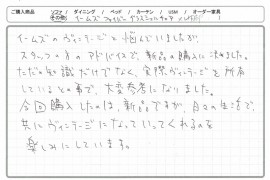 ご購入商品 ソファ / ダイニング / ベッド / カーテン / USM / オーダー家具
その他( イームズ ファイバーグラスシェルチェア )
イームズのヴィンテージと悩んでいましたが、
スタッフさんのアドバイスで、新品の購入に決めました。
ただの知識だけでなく、実際ヴィンテージを所有
しているとの事で、大変参考になりました。
今回購入したのは、新品ですが、日々の生活で、
共にヴィンテージになっていってくれるのを
楽しみにしています。